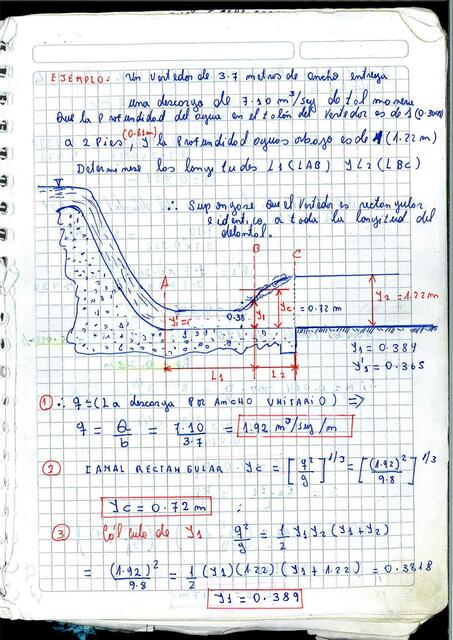 EJEMPLO: Un vertedor de 3.7 metros de ancho entrega
una descarga de 7.10 m³/seg de tal manera
Que la Profundidad del agua en el talón del vertedor es de 1 (0.30m)
a 2 Pies (0.61m), y la Profundidad aguas abajo es de 4 (1.22 m)
Determinese las longitudes L1 (LAB) y L2 (LBC)
∴ Supongase que el vertedor es rectangular
e identico a toda la longitud del
delantal.
A B C
0.38 y1 yc = 0.72 m y2 = 1.22 m
y1 = 0.389
y'1 = 0.365
L1 L2
① ∴ q = (La descarga por Ancho Unitario) ⇒
q = Q/b = 7.10/3.7 = 1.92 m³/seg/m
② CANAL RECTANGULAR yc = [q²/g]^1/3 = [(1.92)²/9.8]^1/3
yc = 0.72 m ;
③ Cálculo de y1 q²/g = 1/2 y1 y2 (y1 + y2)
= (1.92)²/9.8 = 1/2 (y1)(1.22)(y1 + 1.22) = 0.3818
y1 = 0.389